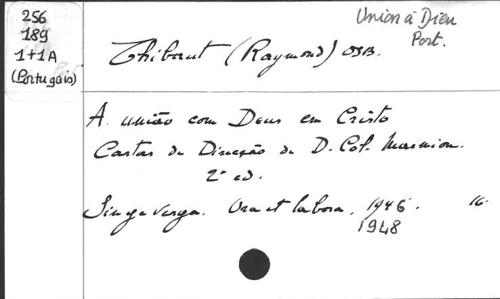 256
189
1+1A
(Portugais)
Union à Dieu
Port.
Thibaut (Raymond) OSB.
A união com Deus em Cristo
Cartas de Direcção de D. Col. Marmion.
2ª ed.
Singeverga. Ora et labora, 1946. 16.
1948